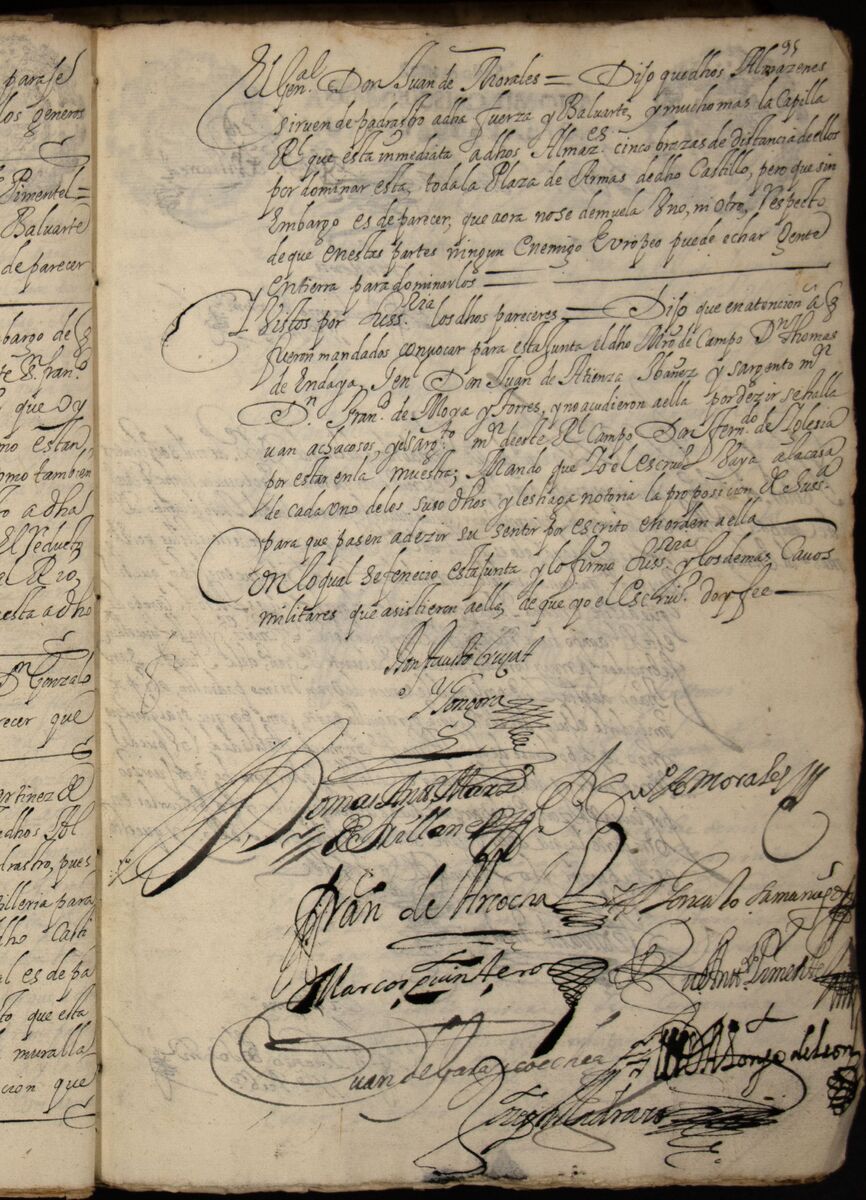 para se
los generos
Pimentel =
Baluarte
de parecer
bargo de
que oy
mo estan
como tambien
to a dha
El Reducto
el Rio,
uesta a dho
Dn Gonzalo
recer que
artinez
dhos Al
drastro, pues
illeria para
dho Casti
al es de pa
to que esta
muralla
cion que
95
El Genal. Don Juan de Morales = Dijo que dhos Almazenes
siruen de padrastro a dha fuerza y Baluarte, y mucho mas la Capilla
Rl que esta inmediata a dhos Almazes. cinco brazas de distancia de ellos
por dominar esta, toda la Plaza de Armas de dho Castillo, pero que sin
embargo es de parecer, que aora no se demuela Vno, ni otro, respecto
de que en estas partes ningun Enemigo Europeo puede echar gente
en tierra para dominarlos
Y Vistos por su ssria los dhos pareceres = Dijo que en atencion a q
fueron mandados convocar para esta Junta el dho Mro de Campo Dn Thomas
de Endaya, Gen. Don Juan de Atienza Ibañez y sargento mr
Dn. Frano. de Moya y Torres, y no acudieron a ella por dezir se halla
uan achacosos, y el sargto. mr de este Rl Campo Don Ferndo de Iglesia
por estar en la muestra; Mando que Yo el escriuo. Vaya a la casa
de cada Vno de les suso dhos y les haga notoria la proposicion de su sa
para que pasen a dezir su sentir por escrito en orden a ella
Con lo qual se fenecio esta Junta y lo firmo su ssria y los demas Cauos
militares que asistieron a ella, de que yo el Escriuo. doy fee
Don fausto Cruzat
Y Gongora
Thomas Anto
Juo de Morales
Juan de
Gonzalo Samaniego
Marcos quintero
Anto. Pimentel
Juan de Garaycoechea
Alonso de leon